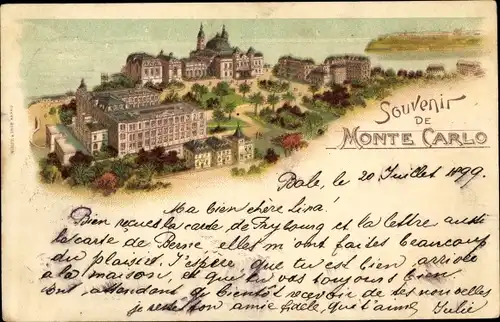 Souvenir
DE
MONTE CARLO
Bale, le 20 Juillet 1899.
Ma bien chère Lina!
Bien reçues la carte de Frybourg et la lettre aussi
la carte de Berne elles m'ont faites beaucoup
du plaisir. J'espère que tu est bien arrivée
à la maison, et que tu vas toujours bien
attendant de bientôt recevoir de tes nouvelles
je reste ton amie fidèle, qui t'aime Julie